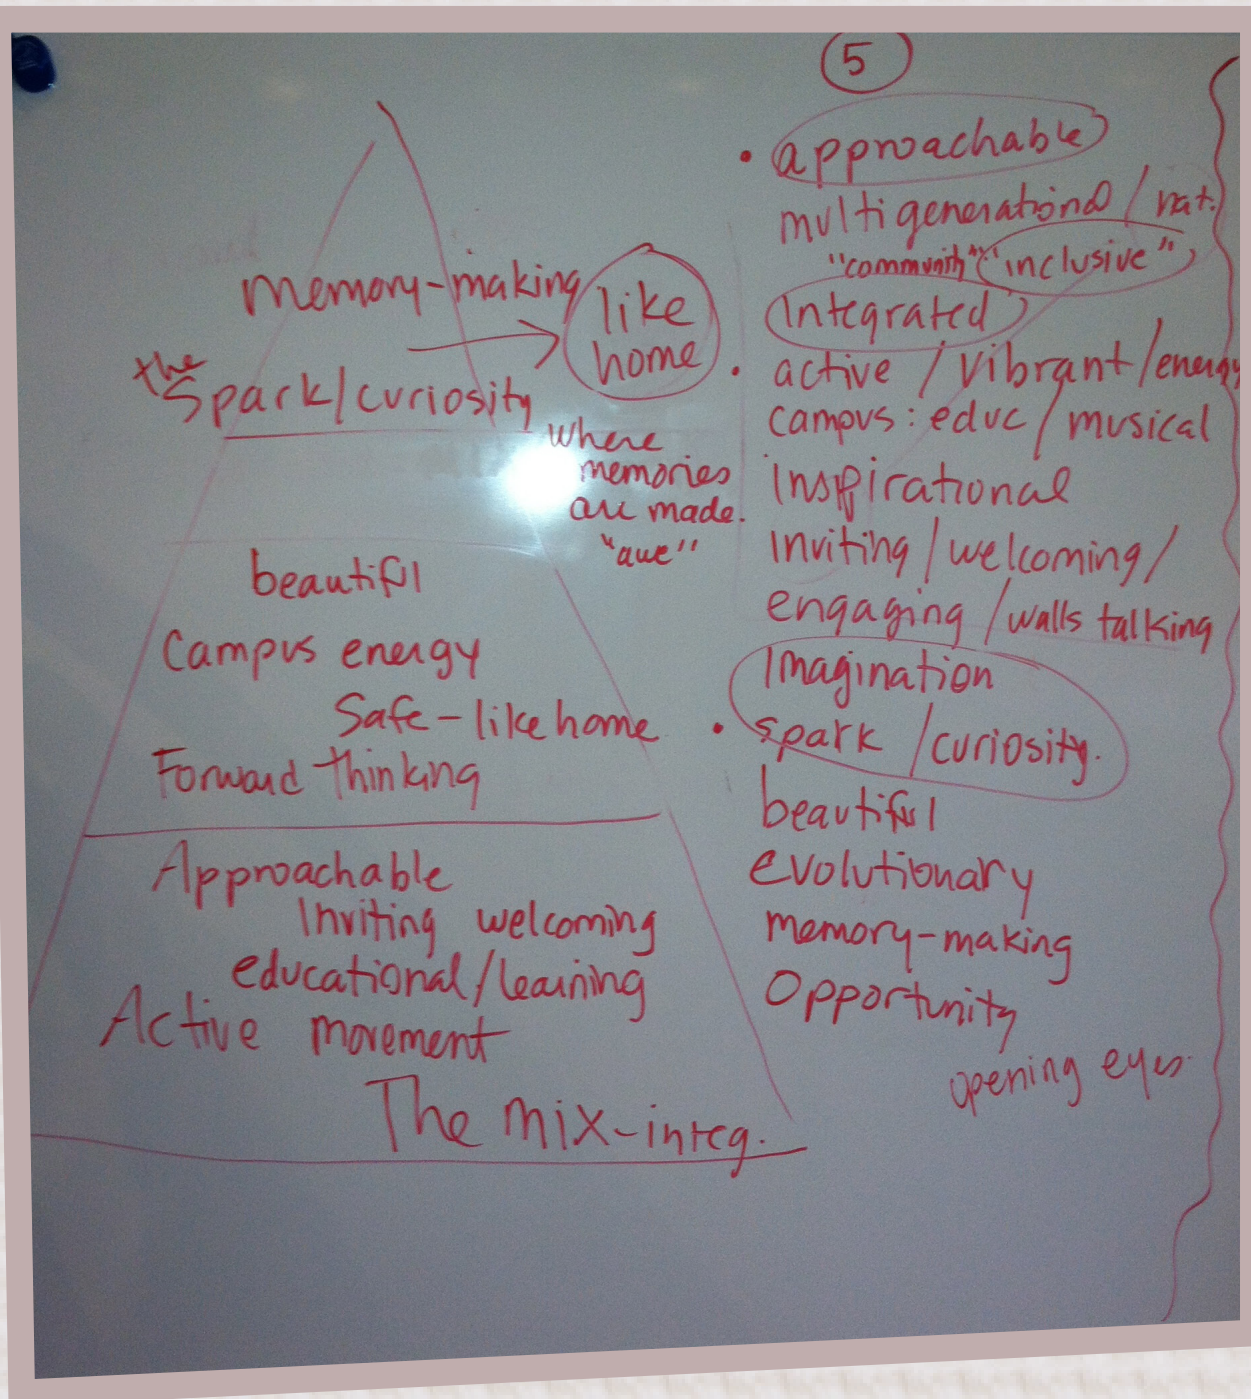 memory-making
the Spark/curiosity
like
home
where
memories
are made.
"awe"
beautiful
Campus energy
Safe-like home
Forward thinking
Approachable
Inviting welcoming
educational/learning
Active movement
The mix-integ.
5
• approachable
multigenerational / nat.
"community" "inclusive"
Integrated
• active / vibrant/energy
campus: educ / musical
Inspirational
Inviting / welcoming /
engaging / walls talking
Imagination
• spark / curiosity.
beautiful
evolutionary
memory-making
Opportunity
opening eyes